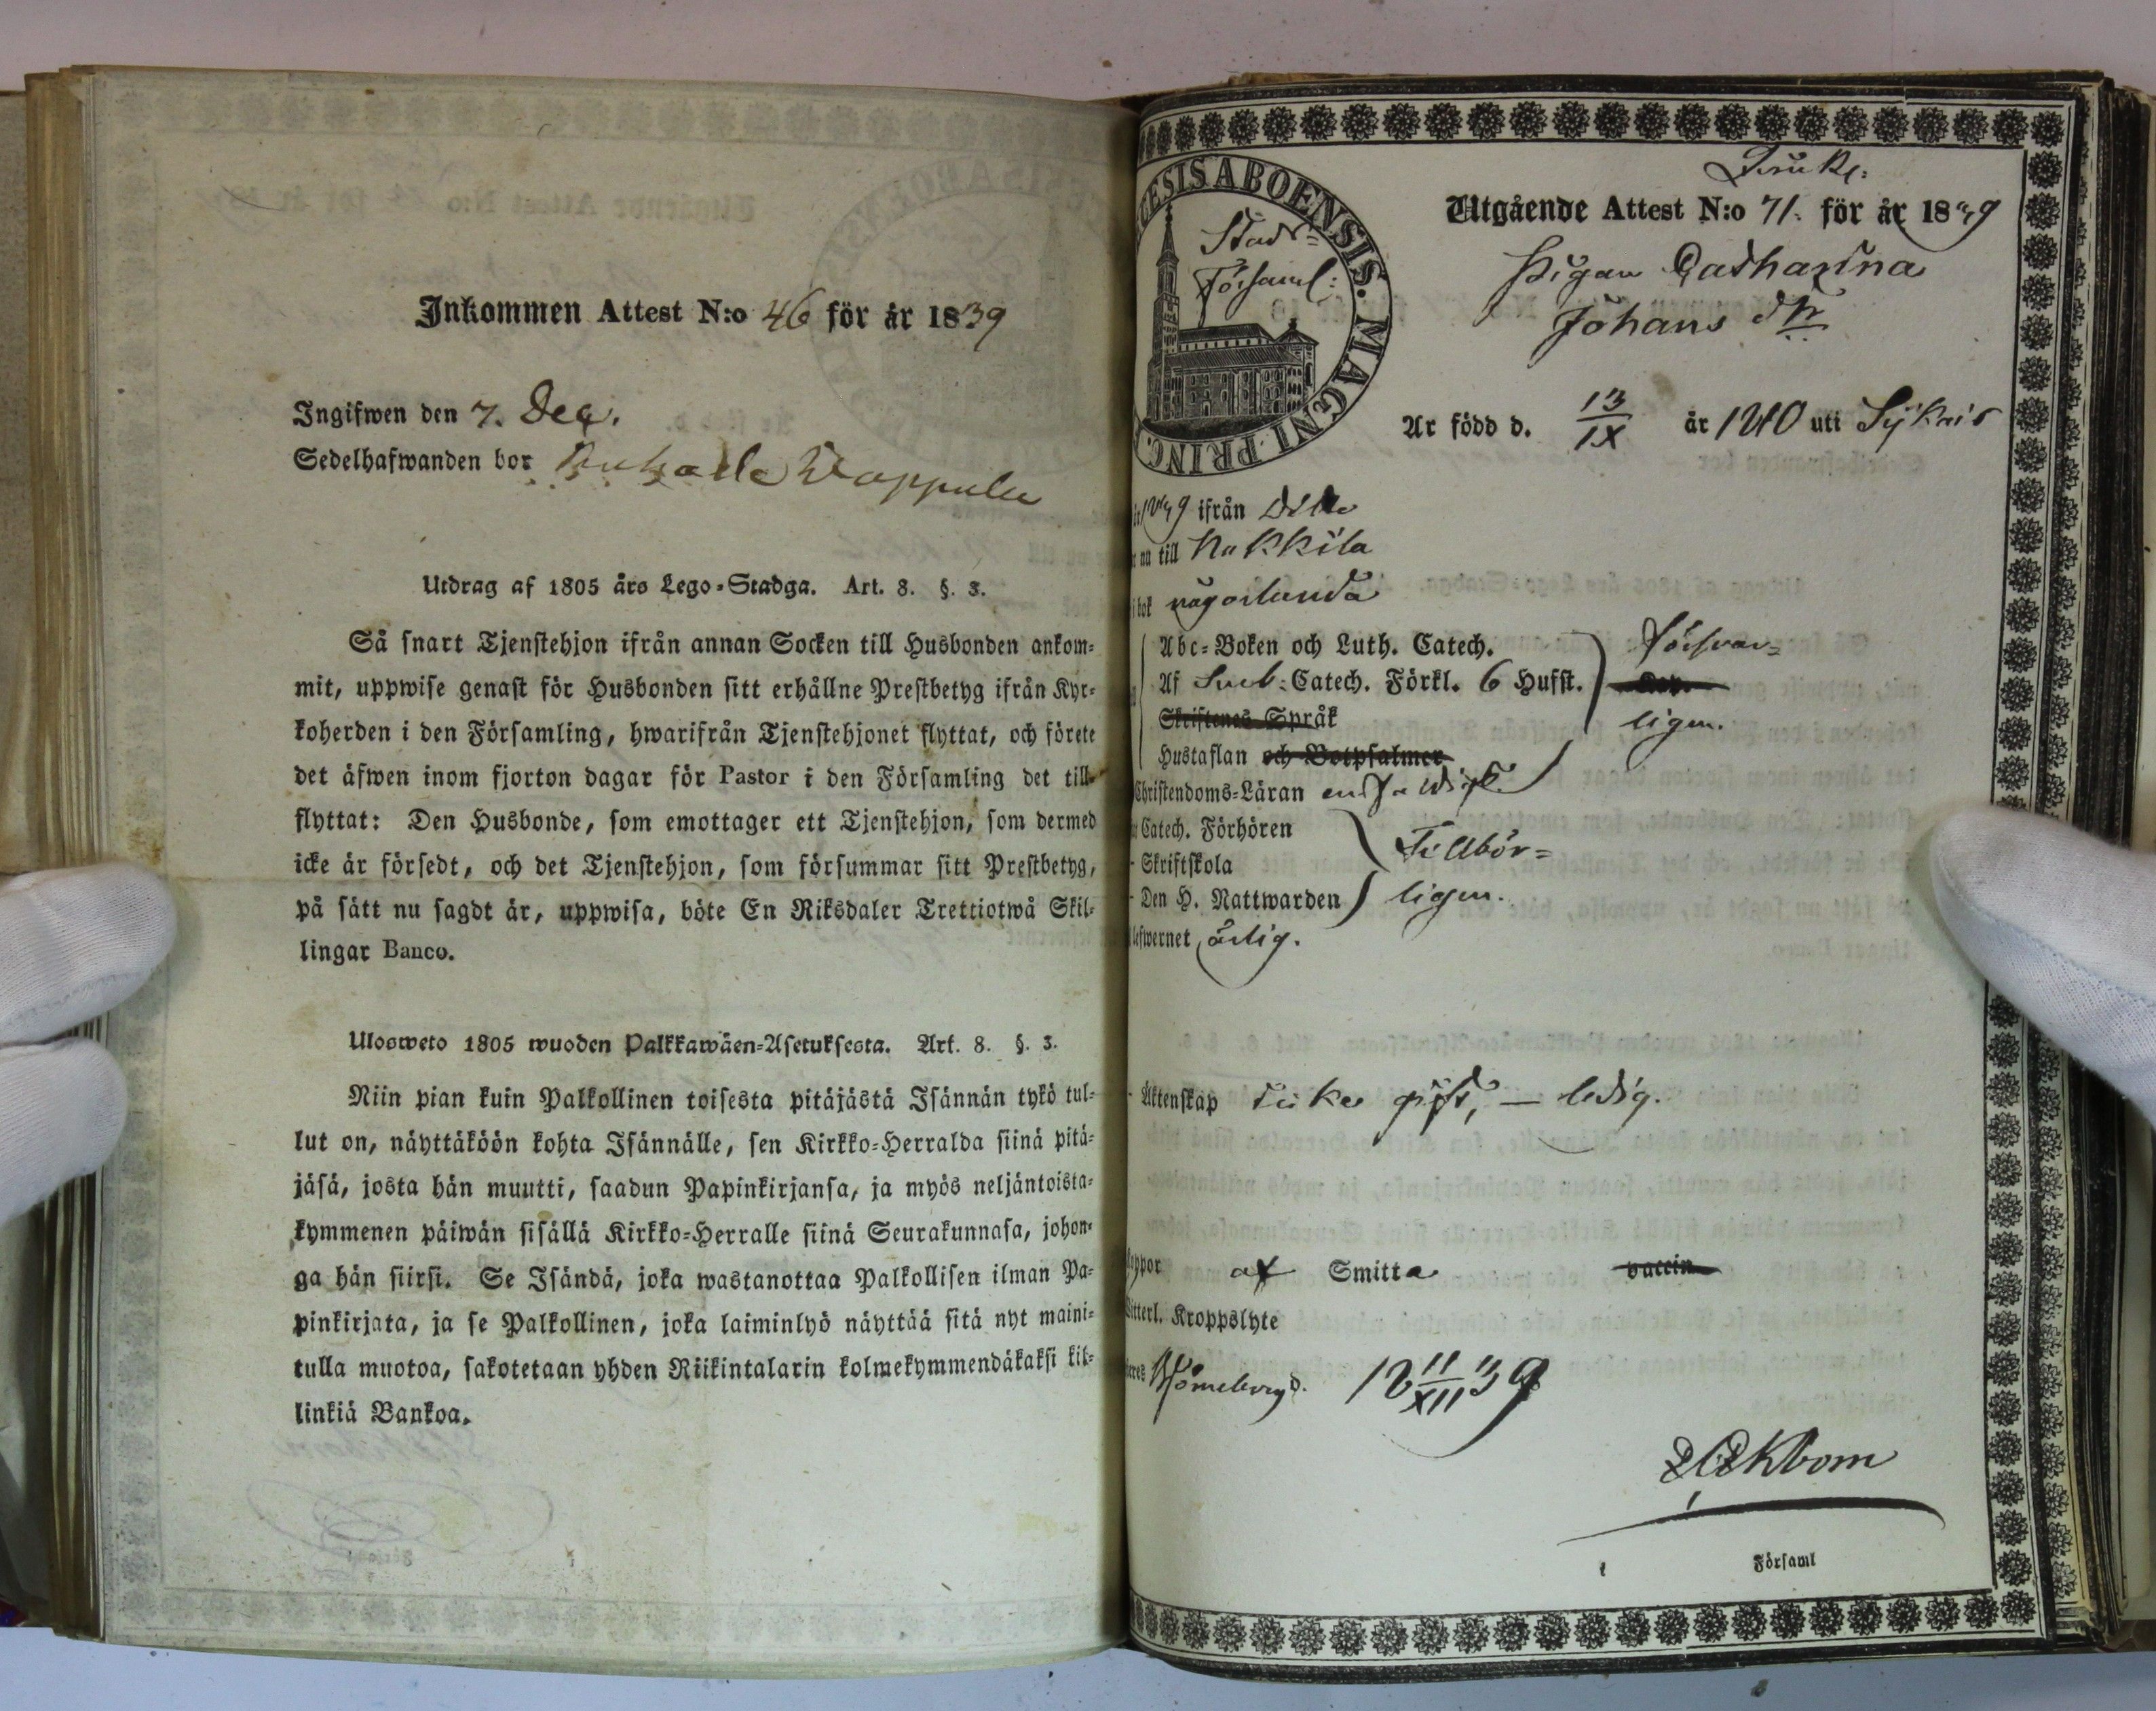 Inkommen Attest N:o 46 för år 1839
Ingifwen den 7. Dec.
Sedelhafwanden bor
Utdrag af 1805 års Lego-Stadga. Art. 8. §. 3.
Så snart Tjenstehjon ifrån annan Socken till Husbonden ankom-
mit, uppwise genast för Husbonden sitt erhållne Prestbetyg ifrån Kyr-
koherden i den Församling, hwarifrån Tjenstehjonet flyttat, och förete
det äfwen inom fjorton dagar för Pastor i den Församling det till-
flyttat: Den Husbonde, som emottager ett Tjenstehjon, som dermed
icke är försedt, och det Tjenstehjon, som försummar sitt Prestbetyg,
på sätt nu sagdt är, uppwisa, böte En Riksdaler Trettiotwå Skil-
lingar Banco.
Ulosweto 1805 wuoden Palkkawäen-Asetuksesta. Art. 8. §. 3.
Niin pian kuin Palkollinen toisesta pitäjästä Isännän tykö tul-
lut on, näyttäköön kohta Isännälle, sen Kirkko-Herralda siinä pitä-
jäsä, josta hän muutti, saadun Papinkirjansa, ja myös neljäntoista-
kymmenen päiwän sisällä Kirkko-Herralle siinä Seurakunnasa, johon-
ga hän siirsi. Se Isändä, joka wastanottaa Palkollisen ilman Pa-
pinkirjata, ja se Palkollinen, joka laiminlyö näyttää sitä nyt maini-
tulla muotoa, sakotetaan yhden Riikintalarin kolmekymmendäkaksi kil-
linkiä Bankoa.
ESIS ABOENSIS. MAGNI PRINC.
Stads-
Församl:
Utgående Attest N:o 71. för år 1839
Pigan Catharina
Johans dr
Är född d. 13/IX år 1810 uti
ifrån
nu till Nakkila
i bok någorlunda
Abc-Boken och Luth. Catech.
Af Sveb: Catech. Förkl. 6 Hufst.
Försvar-
ligen.
Skriftenes Språk
Hustaflan och Botpsalmer
Christendoms-Läran enfaldigt
Catech. Förhören
Skriftskola
Den H. Nattwarden
Tillbör-
ligen.
lefwernet ärlig.
Äktenskap icke gift, — ledig.
koppor af Smitta vaccin
Witterl. Kroppslyte
Björneborg d. 18 11/XII 39
Församl